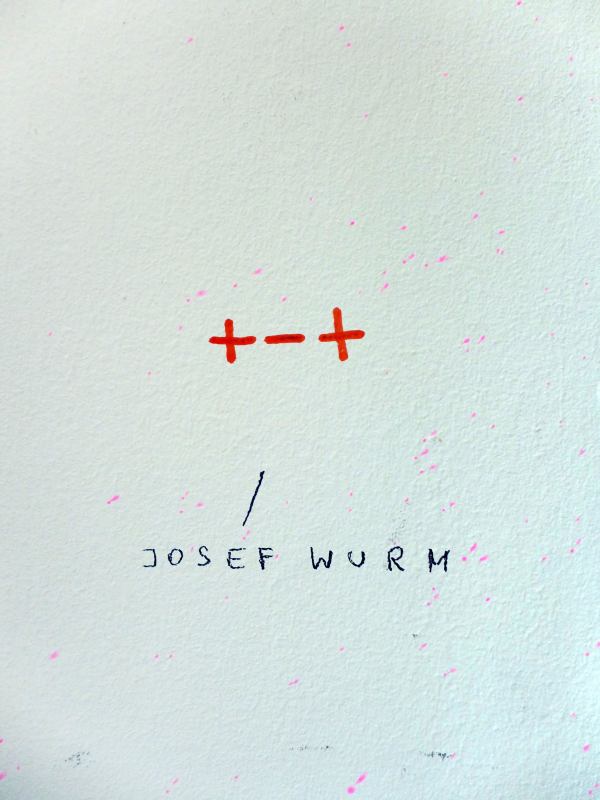 +-+
/
JOSEF WURM